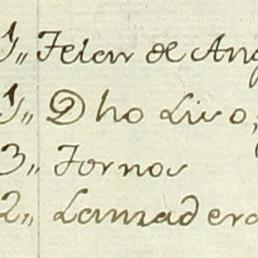 1,, Telar de Ang
1,, Dho Liso,
3,, Tornos
2,, Lanzadera